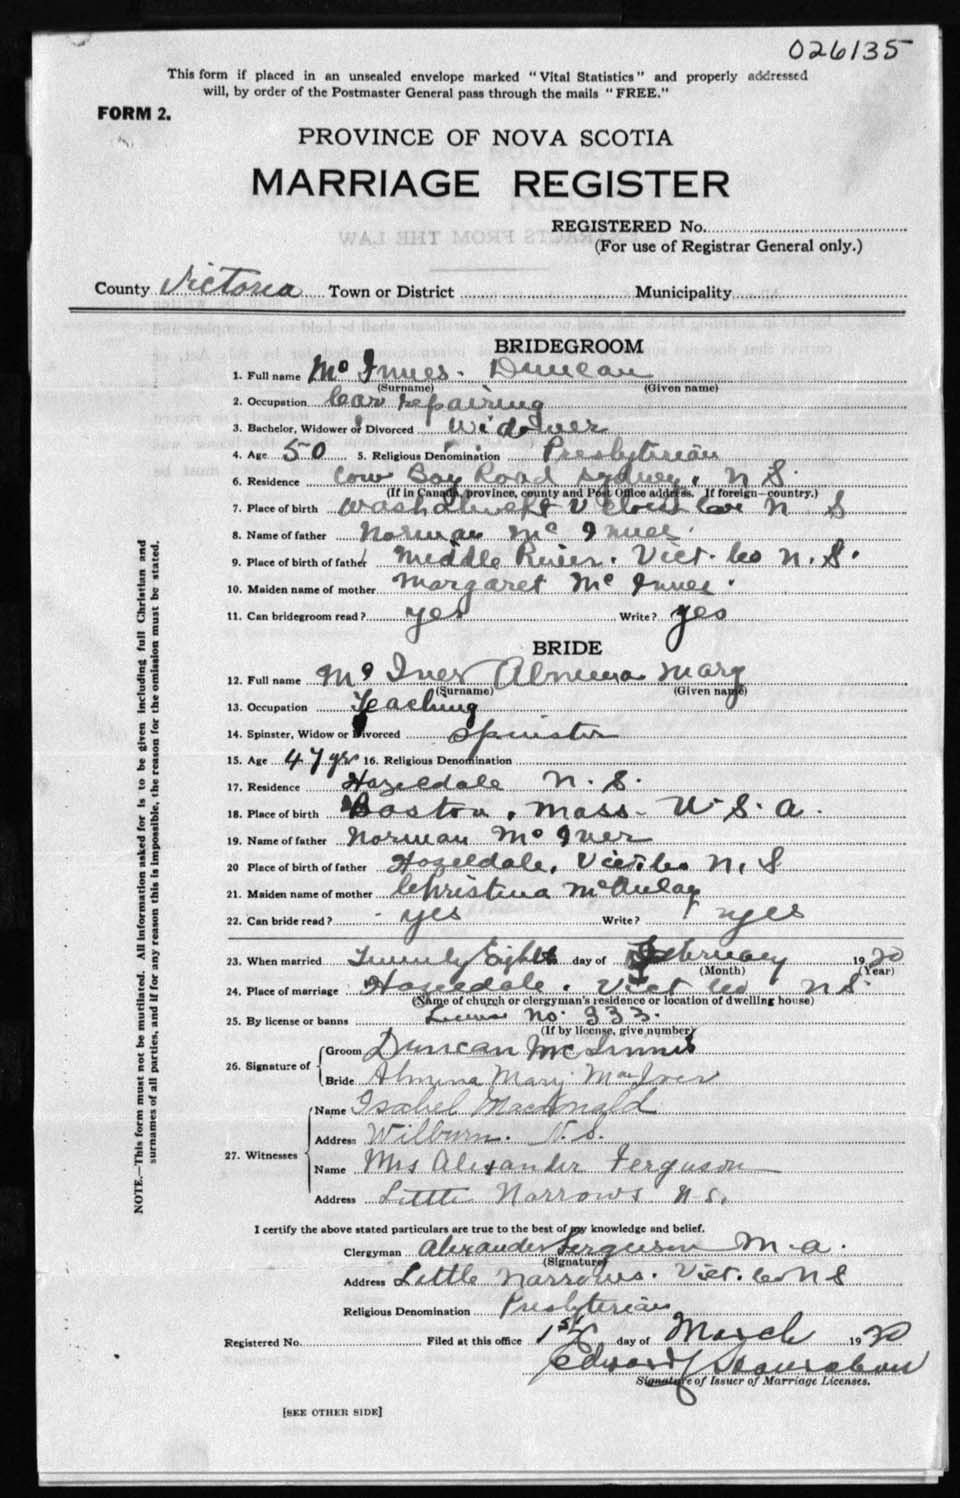 026135
This form if placed in an unsealed envelope marked "Vital Statistics" and properly addressed
will, by order of the Postmaster General pass through the mails "FREE."
FORM 2.
PROVINCE OF NOVA SCOTIA
MARRIAGE REGISTER
REGISTERED No.
(For use of Registrar General only.)
County Victoria Town or District Municipality
BRIDEGROOM
1. Full name Mc Innes. Duncan
(Surname) (Given name)
2. Occupation Car repairing
3. Bachelor, Widower or Divorced Widower
4. Age 50 5. Religious Denomination Presbyterian
6. Residence Cow Bay Road Sydney, N S.
(If in Canada, province, county and Post Office address. If foreign—country.)
7. Place of birth Washabuckt Co N S
8. Name of father Norman Mc Innes.
9. Place of birth of father Middle River. Vict. Co N. S.
10. Maiden name of mother Margaret Mc Innes.
11. Can bridegroom read? yes Write? yes
BRIDE
12. Full name Mc Iver Almena Mary
(Surname) (Given name)
13. Occupation Teaching
14. Spinster, Widow or Divorced Spinster
15. Age 47 yrs 16. Religious Denomination
17. Residence Hazeldale N. S.
18. Place of birth Boston, Mass. U. S. A.
19. Name of father Norman Mc Iver
20 Place of birth of father Hazeldale, Vict. Co N. S
21. Maiden name of mother Christina McAulay
22. Can bride read? yes Write? yes
23. When married Twenty Eighth day of February 1920
(Month) (Year)
24. Place of marriage Hazeldale. Vict Co N S.
(Name of church or clergyman's residence or location of dwelling house)
25. By license or banns License No. 333.
(If by license, give number)
26. Signature of Groom Duncan McInnis
Bride Almena Mary MacIver
27. Witnesses Name Isabel MacDonald
Address Wilburn. N. S.
Name Mrs Alexander Ferguson
Address Little Narrows N S.
I certify the above stated particulars are true to the best of my knowledge and belief.
Clergyman Alexander Ferguson M. A.
(Signature)
Address Little Narrows. Vict. Co N S
Religious Denomination Presbyterian
Registered No. Filed at this office 1st day of March 1920
Edward
Signature of Issuer of Marriage Licenses.
[SEE OTHER SIDE]
NOTE.—This form must not be mutilated. All information asked for is to be given including full Christian and
surnames of all parties, and if for any reason this is impossible, the reason for the omission must be stated.